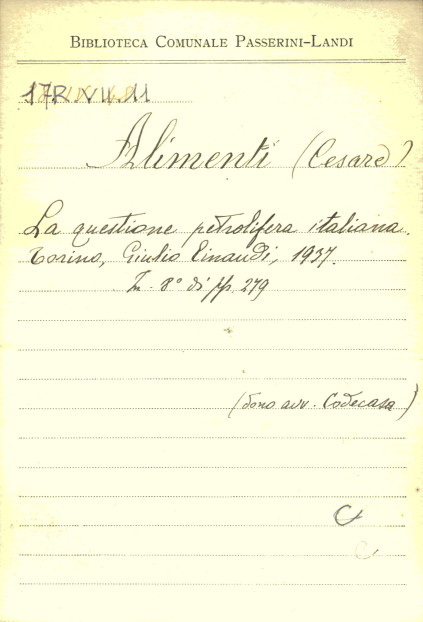 BIBLIOTECA COMUNALE PASSERINI-LANDI
Alimenti (Cesare)
La questione petrolifera italiana.
Torino, Giulio Einaudi, 1937.
In 8° di pp. 279
(dono avv. Codecasa)
C
C